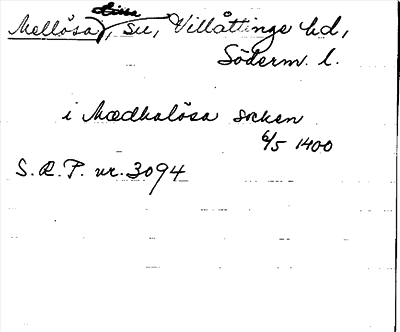 Mellösa, sn, Villåttinge hd,
Söderm. l.
i Mædhalösa socken
6/5 1400
S. R. P. nr. 3094